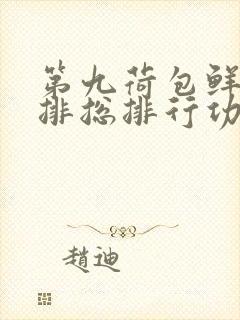 第九荷包鲜
排总排行功
趙迪